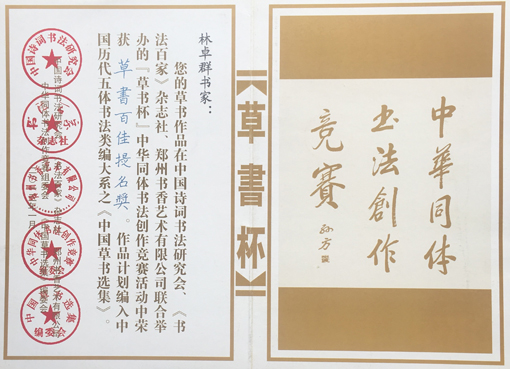 中華同体
书法創作
竞賽
草書杯
林卓群书家：
您的草书作品在中国诗词书法研究会、《书
法百家》杂志社、郑州书香艺术有限公司联合举
办的『草书杯』中华同体书法创作竞赛活动中荣
获 草書百佳提名奖。作品计划编入中
国历代五体书法类编大系之《中国草书选集》。
中国诗词书法研究会
杂志社
编委会